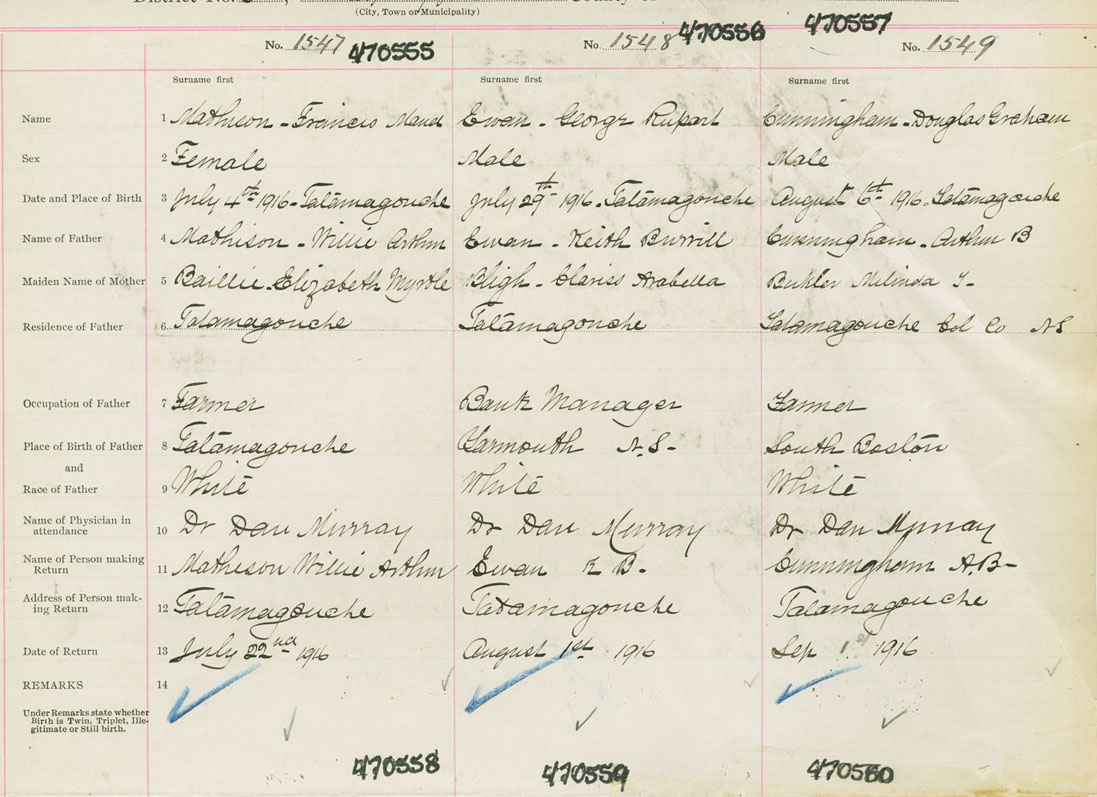 District No.
County of
(City, Town or Municipality)
No. 1547 470555 No. 1548 470556 470557 No. 1549
Surname first Surname first Surname first
Name 1 Matheson - Francis Maud Ewan - George Rupert Cunningham - Douglas Graham
Sex 2 Female Male Male
Date and Place of Birth 3 July 4th 1916 - Tatamagouche July 29th 1916 - Tatamagouche August 6th 1916 - Tatamagouche
Name of Father 4 Mathison - Willie Arthur Ewan - Keith Burrill Cunningham - Arthur B
Maiden Name of Mother 5 Baillie - Elizabeth Myrtle Bligh - Clariss Arabella Melinda J-
Residence of Father 6 Tatamagouche Tatamagouche Tatamagouche Col Co N.S
Occupation of Father 7 Farmer Bank Manager Farmer
Place of Birth of Father 8 Tatamagouche Yarmouth N.S- South Boston
and
Race of Father 9 White White White
Name of Physician in
attendance 10 Dr Dan Murray Dr Dan Murray Dr Dan Murray
Name of Person making
Return 11 Matheson Willie Arthur Ewan K B- Cunningham A.B-
Address of Person mak-
ing Return 12 Tatamagouche Tatamagouche Tatamagouche
Date of Return 13 July 22nd 1916 August 1st 1916 Sep 1st 1916
REMARKS 14
Under Remarks state whether
Birth is Twin, Triplet, Ille-
gitimate or Still birth.
470558 470559 470560